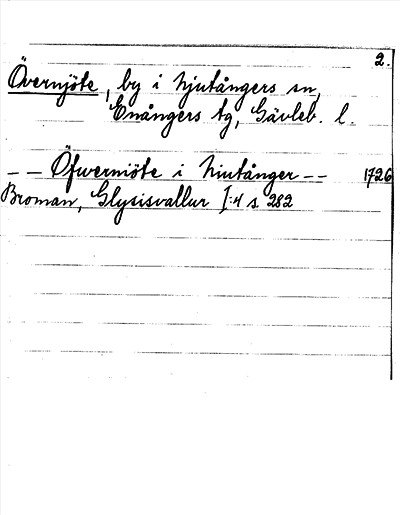 2.
Övernjöte, by i Njutångers sn,
Enångers tg, Gävleb. l.
– – Öfwerniöte i Niutånger – – 1726
Broman, Glysisvallur I:4 s. 282